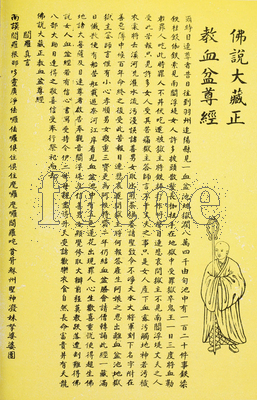 佛說大藏正
教血盆尊經
爾時目連尊者昔日往到羽州追陽縣見一血盆池地獄濶八萬四千由旬池中有一百二十件事鐵梁
鐵柱鐵枷鐵索見南閻浮提女人許多披頭散髮長枷杻手在地獄中受罪獄卒鬼王一日三度將血勒
教罪人吃此時罪人不甘伏吃遂被獄主將鐵棒打作叫聲目連悲哀問獄主不見南閻浮提丈夫之人
受此苦報只見許多女人受其苦痛獄主答師言不干丈夫之事只是女人產下血露污觸地神若穢污
衣裳將去溪河洗濯水流污漫誤諸善男女取水煎茶供養諸聖致令不淨天大將軍劄下名字附在
善惡簿中候百年命終之後受此苦報目連悲哀遂問獄主將何報答產生阿娘之恩出離血盆池地獄
獄主答師言惟有小心孝順男女敬重三寶更為阿娘持血盆齋三年仍結血盆勝會請僧轉誦此經一藏滿
日懺散便有般若船載過奈河江岸看見血盆池中有五色蓮花出現罪人心生歡喜慚愧便得超生佛
地諸大菩薩及目連尊者啟告奉勸南閻浮提善男信女
說女人血盆經若有信心書寫受持令三世母親盡得生天受諸快樂衣食自然長命富貴
八部人非人等皆大歡喜信受奉行
佛說大藏正教血盆尊經